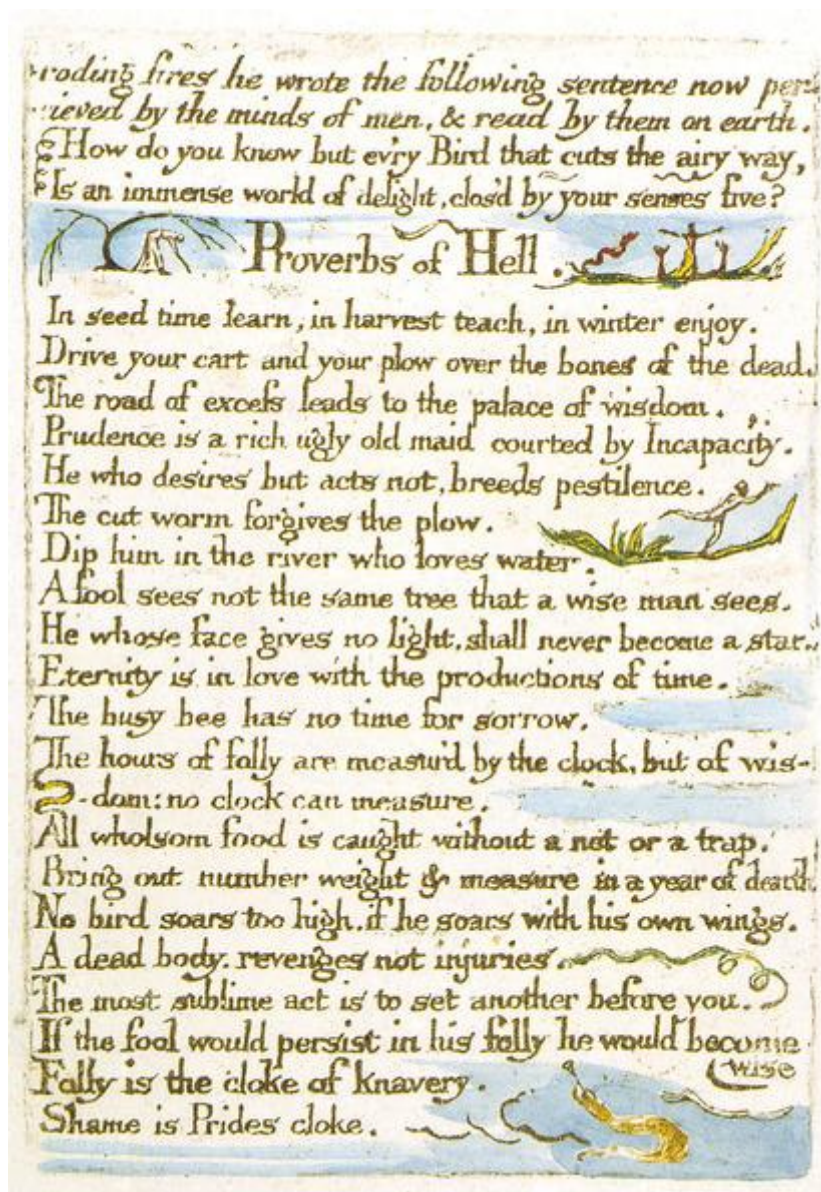 -roding fires he wrote the following sentence now per-
-ieved by the minds of men, & read by them on earth.
How do you know but ev'ry Bird that cuts the airy way,
Is an immense world of delight, clos'd by your senses five?
Proverbs of Hell.
In seed time learn, in harvest teach, in winter enjoy.
Drive your cart and your plow over the bones of the dead.
The road of excess leads to the palace of wisdom.
Prudence is a rich ugly old maid courted by Incapacity.
He who desires but acts not, breeds pestilence.
The cut worm forgives the plow.
Dip him in the river who loves water.
A fool sees not the same tree that a wise man sees.
He whose face gives no light, shall never become a star.
Eternity is in love with the productions of time.
The busy bee has no time for sorrow.
The hours of folly are measur'd by the clock, but of wis-
-dom: no clock can measure.
All wholsom food is caught without a net or a trap.
Bring out number weight & measure in a year of dearth.
No bird soars too high, if he soars with his own wings.
A dead body. revenges not injuries.
The most sublime act is to set another before you.
If the fool would persist in his folly he would become
wise
Folly is the cloke of knavery.
Shame is Prides cloke.